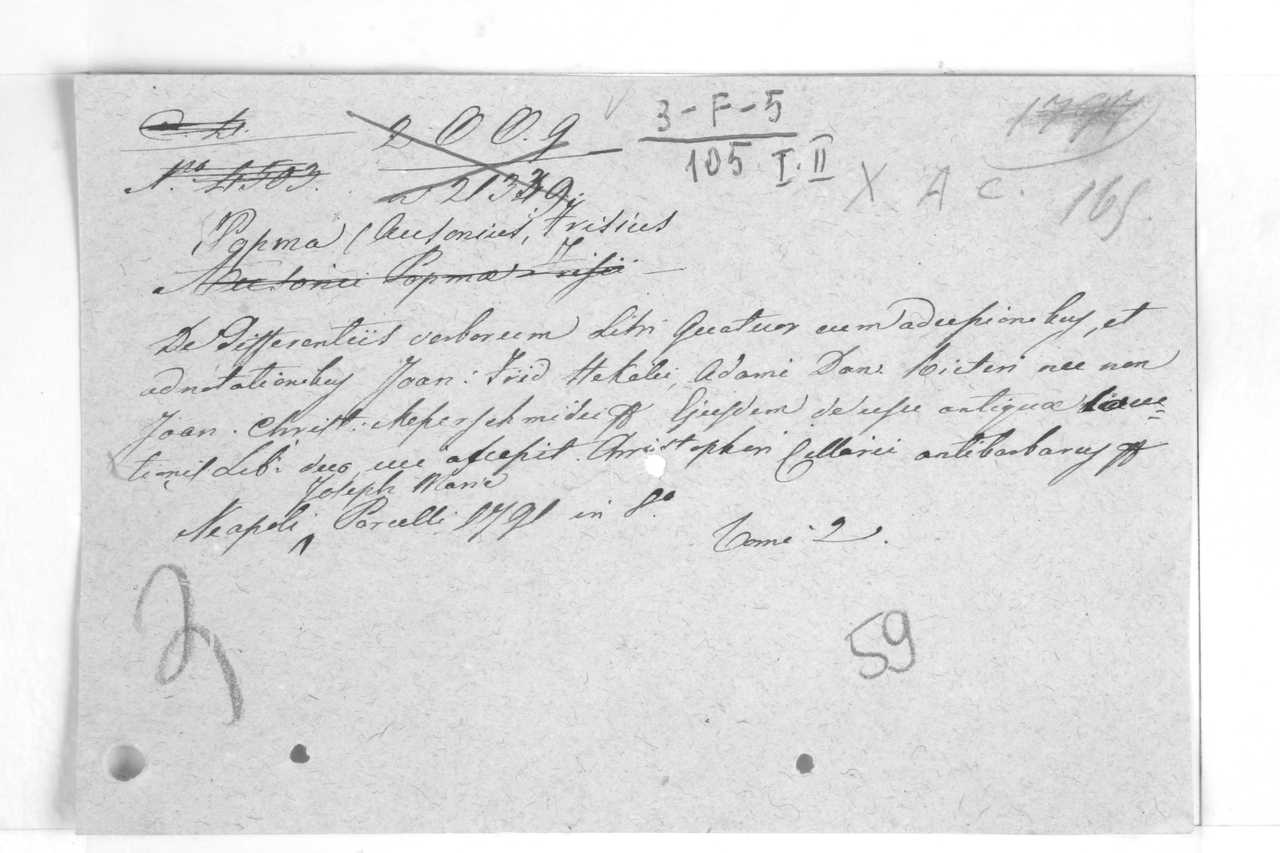 2 0 0. 9 3-F-5
N.ro 4503. 2133 9 105 I. II X A C. 165.
Popma (Ausonius, Frisius
Ausonii Popmæ Frisii
De Differentiis verborum Libri Quatuor cum adcessionibus, et
adnotationibus Joan: Frid Hekelii, Adami Dan: Ricteri nec non
Joan. Christ: Messerschmidii Ejusdem de usu antiquæ locu=
tionis Lib: duo, cui accessit Christophori Cellarii antibarbarus
Joseph Marie
Neapoli, Porcelli 1791 in 8.o Tomi 2.
59